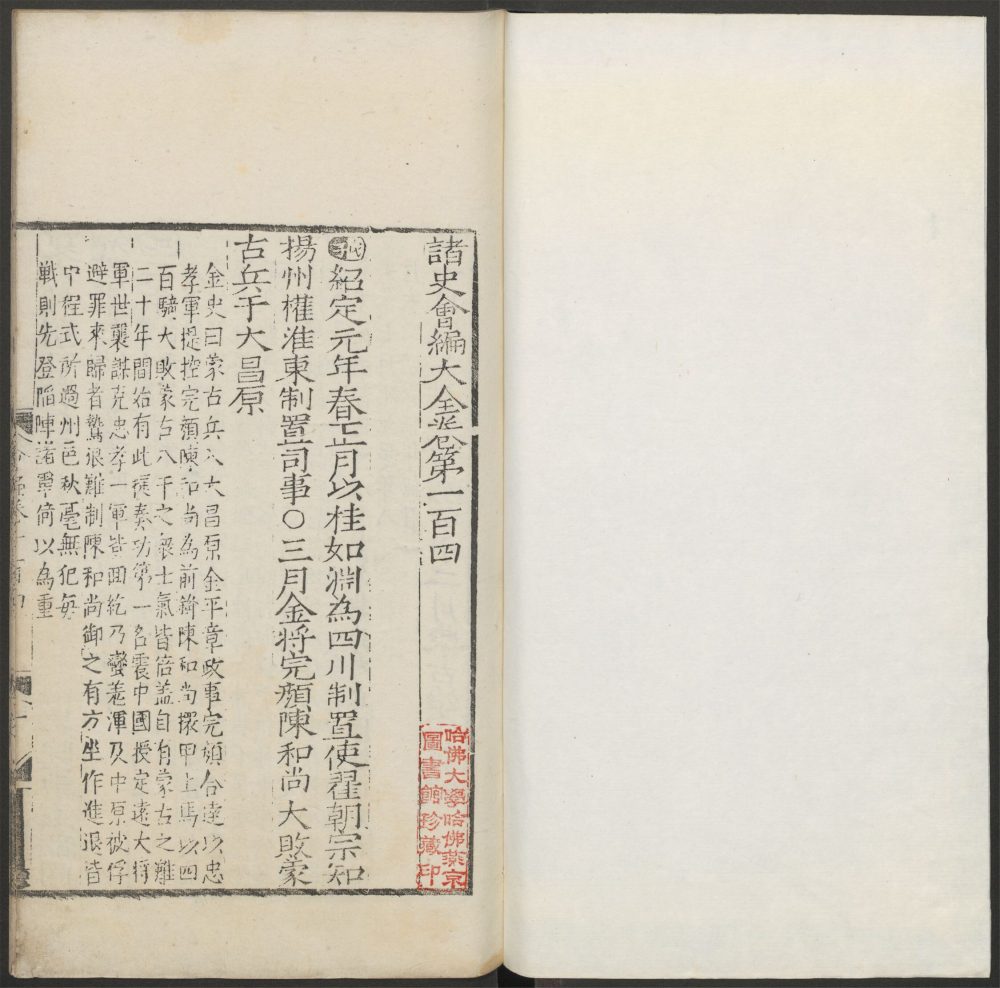 諸史會編大全卷第一百四
紹定元年春正月以桂如淵為四川制置使翟朝宗知
揚州權淮東制置司事○三月金將完顏陳和尚大敗蒙
古兵于大昌原
金史曰蒙古兵入大昌原金平章政事完顏合達以忠
孝軍提控完顏陳和尚為前鋒陳和尚擐甲上馬以四
百騎大敗蒙古八千之衆士氣皆倍盖自有蒙古之難
二十年間始有此捷奏功第一名震中國授定遠大將
軍世襲謀克忠孝一軍皆回紇乃蠻羌渾及中原被俘
避罪來歸者鷙狠難制陳和尚御之有方坐作進退皆
中程式所過州邑秋毫無犯每
戰則先登陷陣諸軍倚以為重
哈佛大學哈佛燕京
圖書館珍藏印